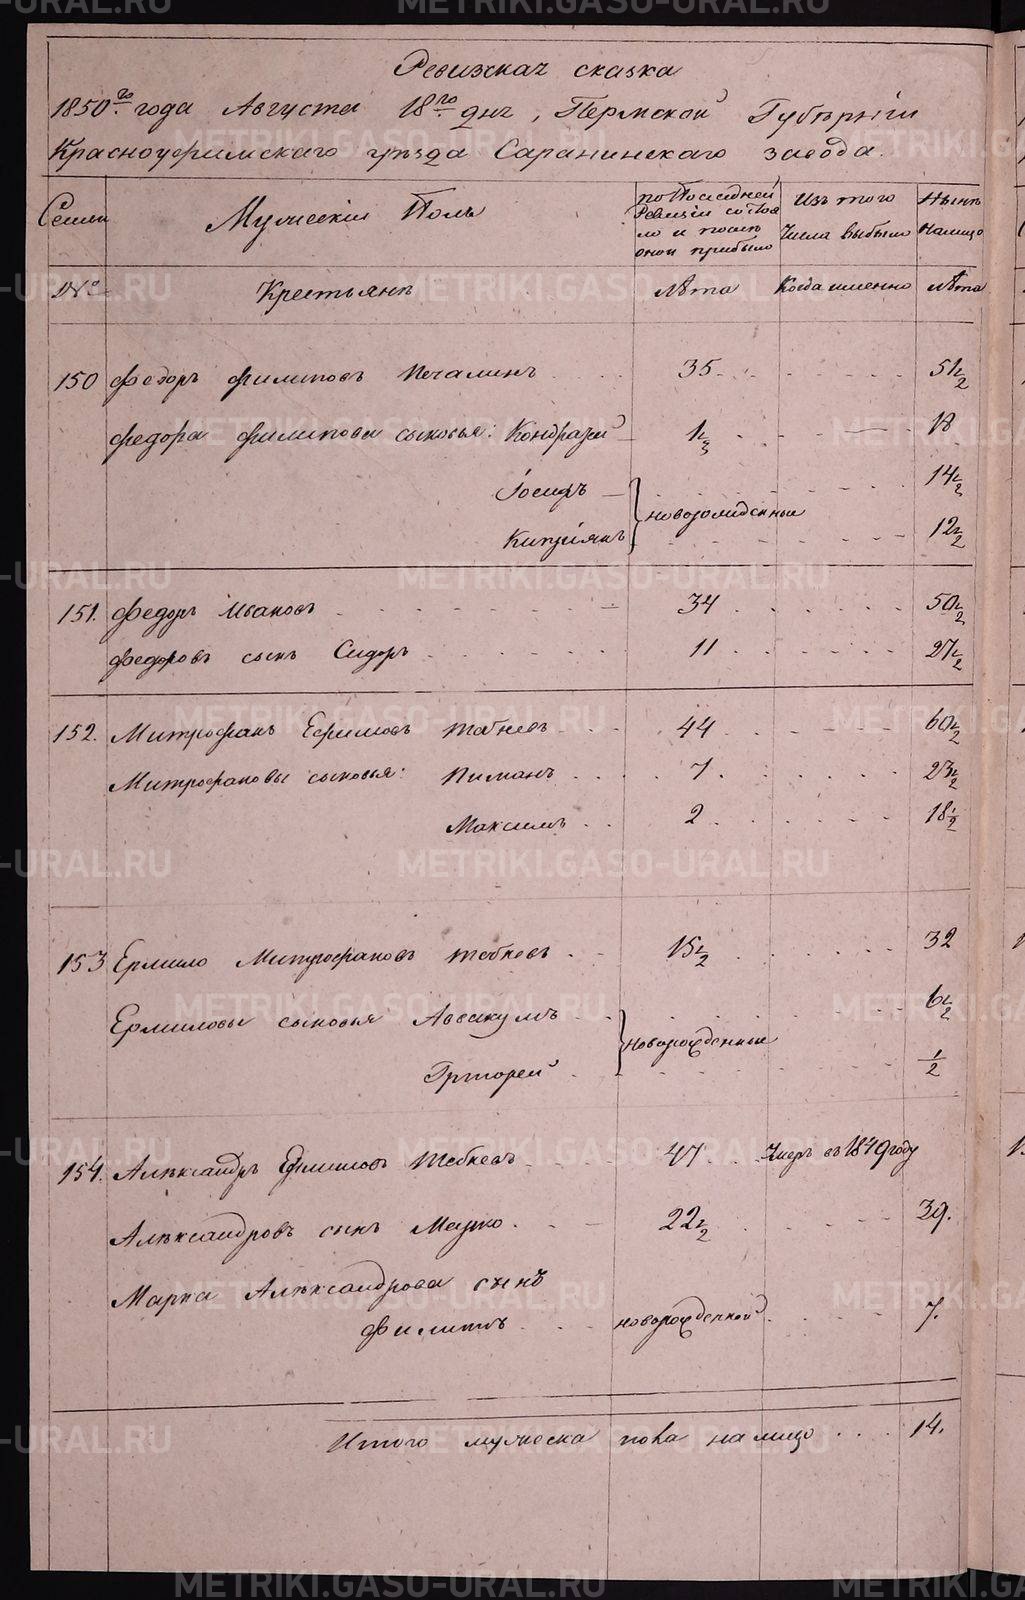 Ревизкая сказка
1850го года Августа 18го дня, Пермской Губѣрнiи
Красноуфимскаго уѣзда Саранинскаго завода.
Семьи Мужескiй Полъ по Последней Ревизiи состояло и послѣ оной прибыло Изъ того Числа выбыло Нынѣ Налицо
№ Крестьянѣ Лѣта Когда именно Лѣта
150 Федоръ Филиповъ Печалинъ 35 51 1/2
Федора Филипова сыновья: Кондратей 1 1/2 18
Iосифъ 14 1/2
новорожденныи
Кипрiянъ 12 1/2
151. Федоръ Ивановъ 34 50 1/2
Федоровъ сынъ Сидоръ 11 27 1/2
152. Митрофанъ Ефимовъ 44 60 1/2
Митрофановы сыновья: Пиманъ 7 23 1/2
Максимъ 2 18 1/2
153 Ермило Митрофановъ 15 1/2 32
Ермиловы сыновья Аввакумъ 6 1/2
новорожденные
Григорей 1/2
154. Алѣксандръ Ефимовъ 47 Умеръ въ 1849 году
Алѣксандровъ сынъ Марко 22 1/2 39.
Марка Алѣксандрова сынъ
Филипъ новорожденной 7.
Итого мужеска пола налицо 14.
METRIKI.GASO-URAL.RU